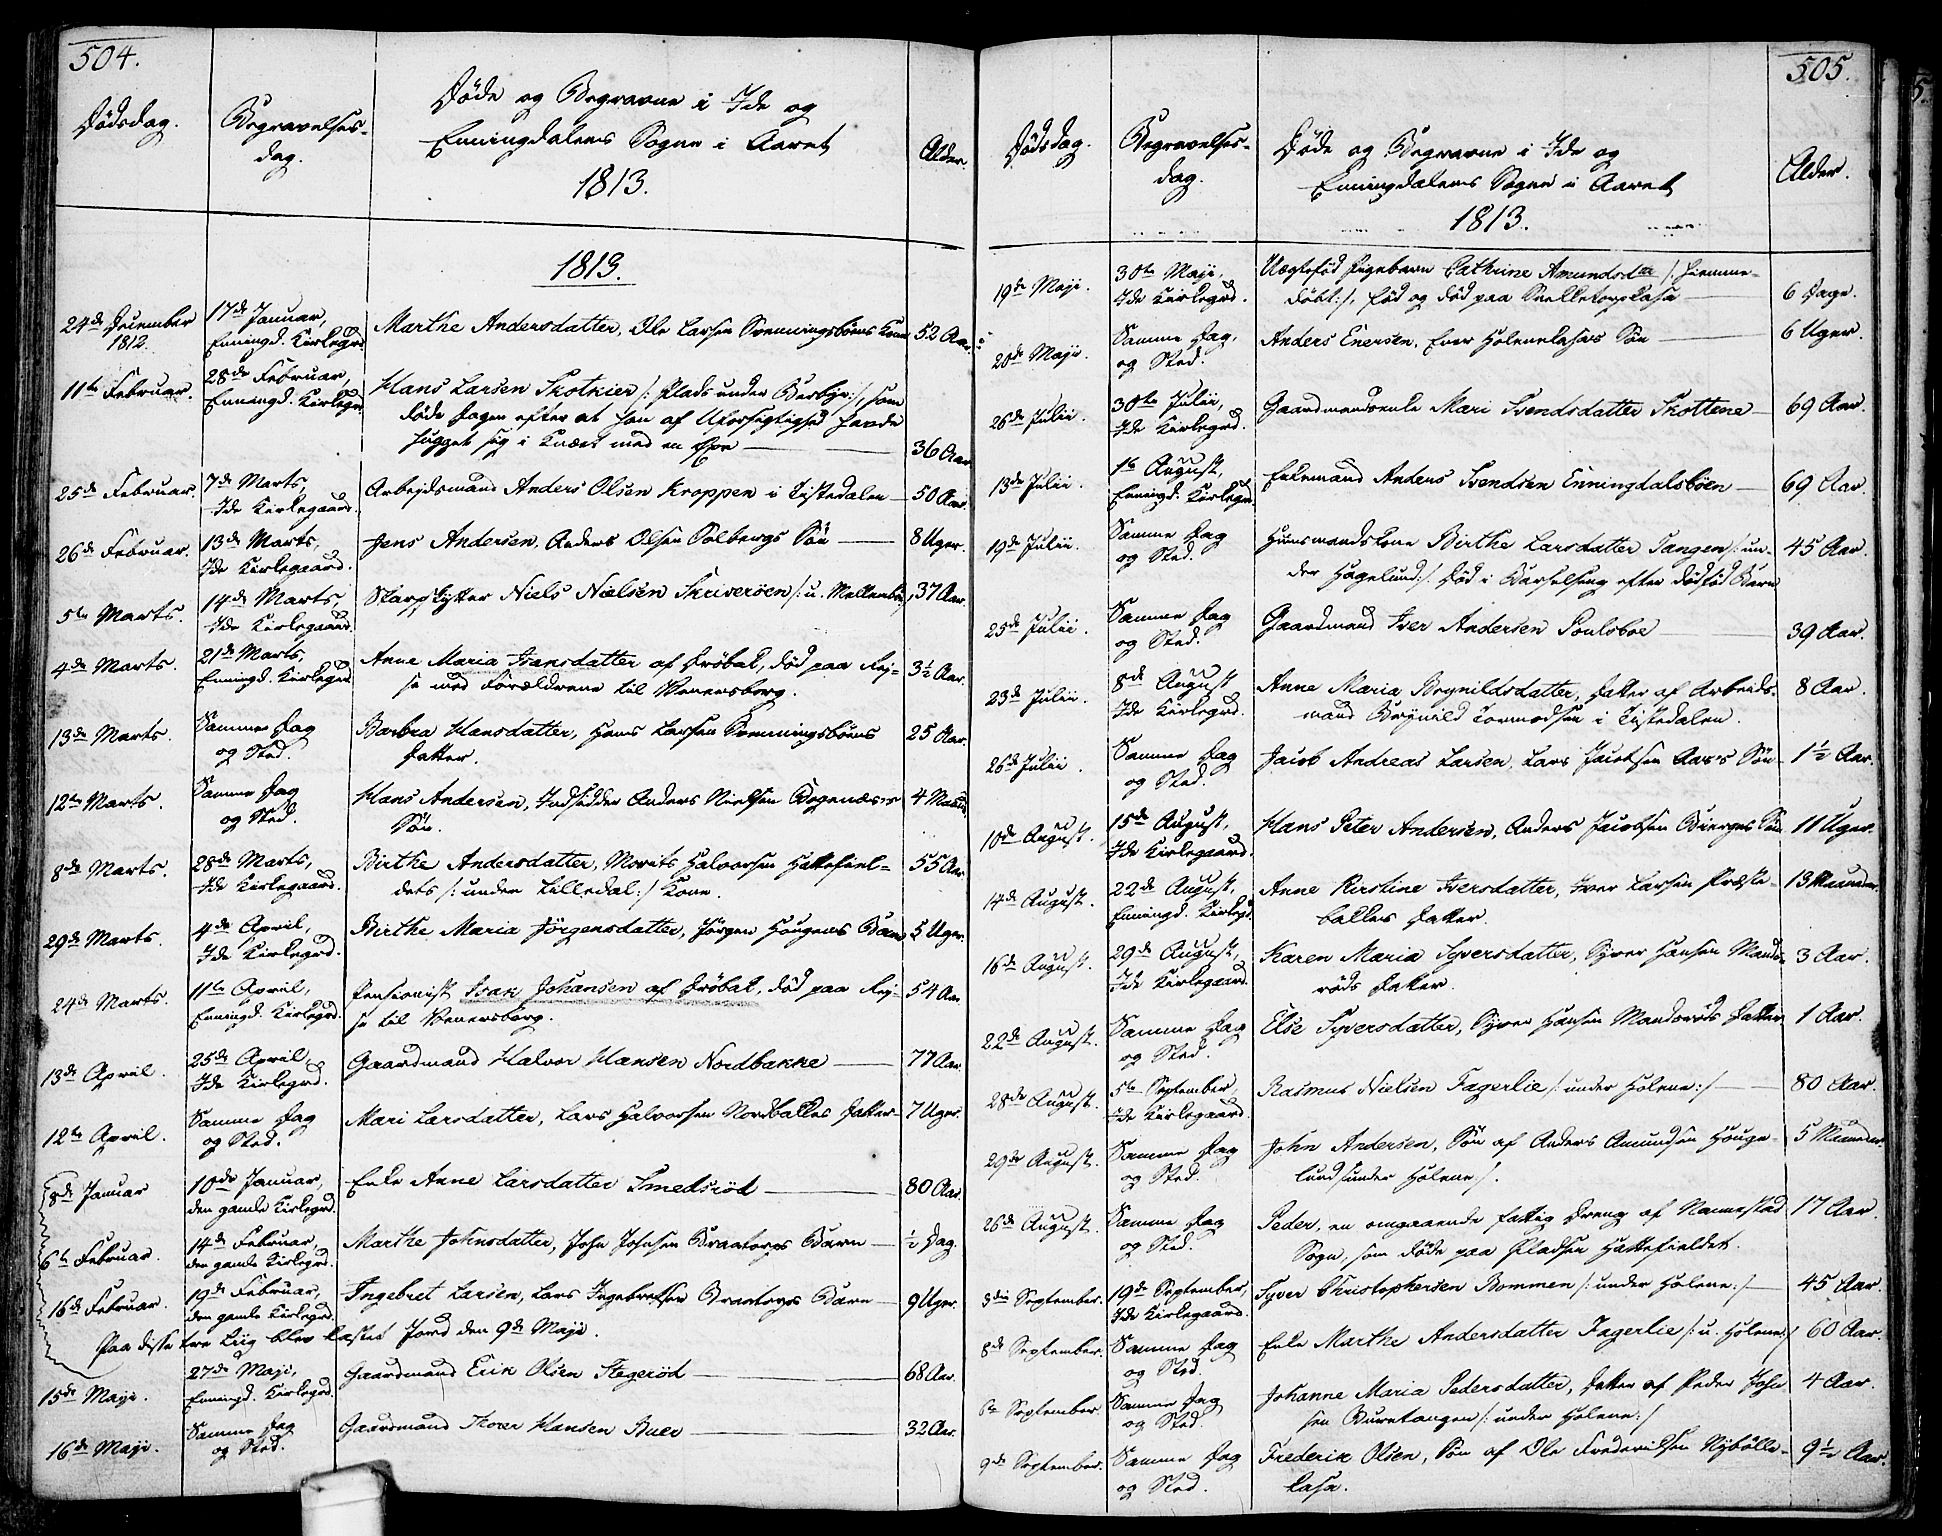 504.
Dödsdag.
Begravelses-
dag.
Döde og Begravne i Ide og
Enningdalens Sogne i Aaret
1813.
Alder.
1813.
24de December
1812.
17de Januar,
Enningd. Kirkegrd.
Marthe Andersdatter, Ole Larsen Svenningsböens Kone
52 Aar.
11te Februar.
28de Februar,
Enningd. Kirkegrd.
Hans Larsen Skotkier /: Plads under Berby :/, som
döde Dagen efter at han af Uforsigtighed havde
hugget sig i Knæet med en Öxe
36 Aar
25de Februar.
7de Marts,
Ide Kirkegaard.
Arbejdsmand Anders Olsen Kroppen i Tistedalen
50 Aar.
26de Februar.
13de Marts,
Ide Kirkegaard.
Jens Andersen, Anders Olsen Solbergs Sön
8 Uger.
5te Marts.
14de Marts,
Ide Kirkegaard.
Skarpskytter Niels Nielsen Skriveröen /: u.
37 Aar.
4de Marts.
21de Marts,
Enningd. Kirkegrd.
Anne Maria Isaksdatter af Dröbak, död paa Rej-
se med Forældrene til Wenersborg.
3½ Aar.
13de Marts.
Samme Dag
og Sted.
Barbra Hansdatter, Hans Larsen Svenningsböens
Datter.
25 Aar.
12te Marts.
Samme Dag
og Sted.
Hans Andersen, Indsidder Anders Nielsen Bogenæsets
Sön.
4 Maan.
8de Marts.
28de Marts,
Ide Kirkegaard.
Birthe Andersdatter, Morits Halvorsen Hattefiel-
dets /: under Lilledal :/ Kone.
55 Aar
29de Marts.
4de April,
Ide Kirkegrd.
Birthe Maria Jörgensdatter, Jörgen Hougens Barn
5 Uger.
24de Marts.
11te April,
Enningd. Kirkegrd.
Pensionist Isak Johansen af Dröbak, död paa Rej-
se til Wenersborg.
54 Aar
13de April.
25de April,
Ide Kirkegrd.
Gaardmand Halvor Hansen Nordbakke
77 Aar.
12te April.
Samme Dag
og Sted.
Mari Larsdatter, Lars Halvorsen Nordbakkes Datter
7 Uger.
8de Januar
10de Januar,
den gamle Kirkegrd.
Enke Anne Larsdatter Smedsröd
80 Aar.
6te Februar.
14de Februar,
den gamle Kirkegrd.
Marthe Johnsdatter, John Johnsen Braatorps Barn
½ Dag.
16de Februar.
19de Februar,
den gamle Kirkegrd.
Ingebret Larsen, Lars Ingebretsen Braatorps Barn
9 Uger.
Paa disse tre Liig blev kastet Jord den 9de Maji.
15de Maji.
27de Maji,
Enningd. Kirkegrd.
Gaardmand Erik Olsen Stegeröd
68 Aar.
16de Maji.
Samme Dag
og Sted.
Gaardmand Thorer Hansen Buer
32 Aar.
505.
Dödsdag.
Begravelses-
dag.
Döde og Begravne i Ide og
Enningdalens Sogne i Aaret
1813.
Alder.
19de Maji.
30te Maji,
Ide Kirkegrd.
Uægtefód Pigebarn Cathrine Amundsdtr /: hiemme-
döbt :/, föd og död paa
6 Dage.
20de Maji.
Samme Dag,
og Sted.
Anders Enersen, Ener Holenekasas Sön
6 Uger.
26de Julii.
30te Julii,
Ide Kirkegrd.
Gaardmandsenke Mari Svendsdatter Skottene
69 Aar.
13de Julii.
1te August,
Enningd. Kirkegrd.
Enkemand Anders Svendsen Enningdalsböen
69 Aar.
19de Julii.
Samme Dag
og Sted.
Huusmandskone Birthe Larsdatter Tangen /: un-
der Hogelund :/. Död i Barselseng efter dödföd Barn
45 Aar.
25de Julii.
Samme Dag
og Sted.
Gaardmand Iver Andersen Poulsboe
39 Aar.
23de Julii.
8de August
Ide Kirkegrd.
Anne Maria Brynildsdatter, Datter af Arbeids-
mand Brynild Tormodsen i Tistedalen.
8 Aar.
26de Julii.
Samme Dag
og Sted.
Jacob Andreas Larsen, Lars Jacobsen Aas's Sön
1½ Aar.
10de August.
15de August,
Ide Kirkegaard.
Hans Peter Andersen, Anders Jacobsen Bierges Sön
11 Uger.
14de August.
22de August,
Enningd. Kirkegrd.
Anne Kirstine Iversdatter, Iver Larsen Præste-
bakkes Datter.
13 Maaneder.
16de August.
29de August,
Ide Kirkegaard.
Karen Maria Syversdatter, Syver Hansen Mande-
röds Datter.
3 Aar.
22de August.
Samme Dag
og Sted.
Else Syversdatter, Syver Hansen Manderöds Datter
1 Aar.
28de August.
5te September,
Ide Kirkegaard.
Rasmus Nielsen Fagerlie /: under Holene :/
80 Aar.
29de August.
Samme Dag
og Sted.
John Andersen, Sön af Anders Amundsen Houge-
lund /: under Holene :/.
5 Maaneder
26de August.
Samme Dag
og Sted.
Peder, en omgaaende fattig Dreng af Nannestad
Sogn, som döde paa Pladsen Hattefieldet.
17 Aar.
3die September.
19de September,
Ide Kirkegaard.
Syver Christophersen Bommen /: under Holene :/
45 Aar.
8de September.
Samme Dag
og Sted.
Enke Marthe Andersdatter Fagerlie /: u. Holene :/
60 Aar.
6te September.
Samme Dag
og Sted.
Johanne Maria Pedersdatter, Datter af Peder John-
sen Buretangen /: under Holene :/
4 Aar.
9de September.
Samme Dag
og Sted.
Frederik Olsen, Sön af Ole Frederiksen Nybölle-
kasa.
9½ Aar.